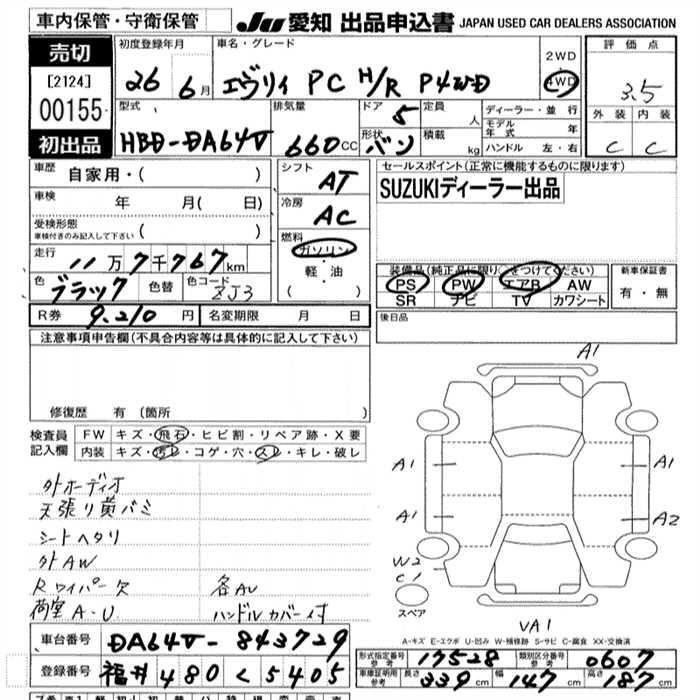 車内保管・守衛保管
JU 愛知 出品申込書 JAPAN USED CAR DEALERS ASSOCIATION
売切
[2124]
00155
初出品
初度登録年月
26 6月
車名・グレード
エヴリィ PC H/R P4WD
2WD
4WD
評価点
3.5
外装 内装
C C
型式
HBD-DA64V
排気量
660cc
ドア 5
形状 バン
定員 人
積載 kg
ディーラー・並行
モデル年式 年
ハンドル 左・右
車歴 自家用・( )
車検 年 月( 日)
受検形態
車検付きのみ記入して下さい ( )
走行
11万7千767km
色 ブラック 色替 色コード ZJ3
シフト AT
冷房 AC
燃料
ガソリン
軽・油
( )
セールスポイント(正常に機能するものに限ります)
SUZUKIディーラー出品
装備品(純正品に限り○をつけてください)
PS PW エアB AW
SR ナビ TV カワシート
新車保証書
有・無
R券 9,210円 名変期限 月 日
後日品
注意事項申告欄(不具合内容等は具体的に記入して下さい)
修復歴 有 (箇所
検査員記入欄
FW キズ・飛石・ヒビ割・リペア跡・X要
内装 キズ・汚レ・コゲ・穴・スレ・キレ・破レ
外オーディオ
天張り黄バミ
シートヘタリ
外AW
Rワイパー欠 各AU
荷室A・U ハンドルカバー付
A1
A1 A1
A1 A2
W2
C1
スペア
VA1
A-キズ E-エクボ U-凹み W-補修跡 S-サビ C-腐食 XX-交換済
車台番号 DA64V-843729
登録番号 福井 480 く 5405
形式指定番号 参考 17528 類別区分番号 参考 0607
車庫証明用 参考 長さ 339cm 幅 147cm 高さ 187cm